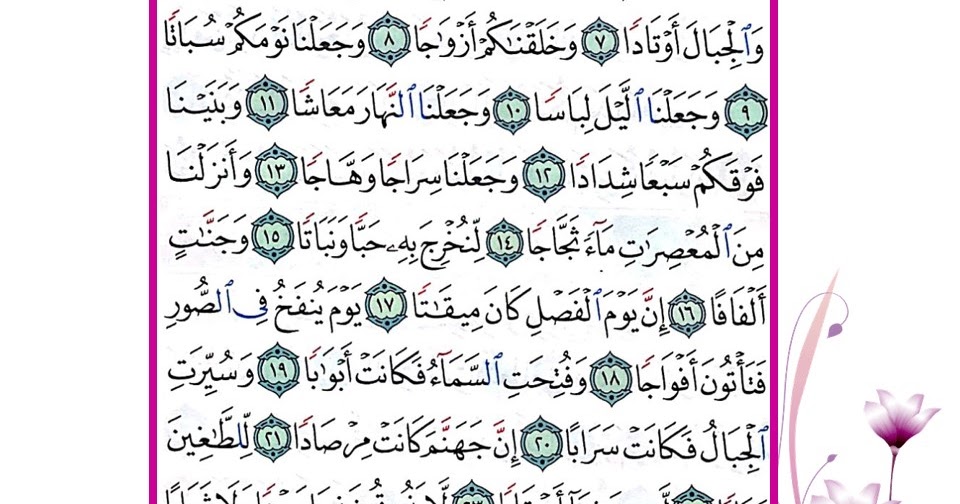 وَٱلۡجِبَالَ أَوۡتَادٗا ٧ وَخَلَقۡنَٰكُمۡ أَزۡوَٰجٗا ٨ وَجَعَلۡنَا نَوۡمَكُمۡ سُبَاتٗا
٩ وَجَعَلۡنَا ٱلَّيۡلَ لِبَاسٗا ١٠ وَجَعَلۡنَا ٱلنَّهَارَ مَعَاشٗا ١١ وَبَنَيۡنَا
فَوۡقَكُمۡ سَبۡعٗا شِدَادٗا ١٢ وَجَعَلۡنَا سِرَاجٗا وَهَّاجٗا ١٣ وَأَنزَلۡنَا
مِنَ ٱلۡمُعۡصِرَٰتِ مَآءٗ ثَجَّاجٗا ١٤ لِّنُخۡرِجَ بِهِۦ حَبّٗا وَنَبَاتٗا ١٥ وَجَنَّٰتٍ
أَلۡفَافًا ١٦ إِنَّ يَوۡمَ ٱلۡفَصۡلِ كَانَ مِيقَٰتٗا ١٧ يَوۡمَ يُنفَخُ فِي ٱلصُّورِ
فَتَأۡتُونَ أَفۡوَاجٗا ١٨ وَفُتِحَتِ ٱلسَّمَآءُ فَكَانَتۡ أَبۡوَٰبٗا ١٩ وَسُيِّرَتِ
ٱلۡجِبَالُ فَكَانَتۡ سَرَابًا ٢٠ إِنَّ جَهَنَّمَ كَانَتۡ مِرۡصَادٗا ٢١ لِّلطَّٰغِينَ